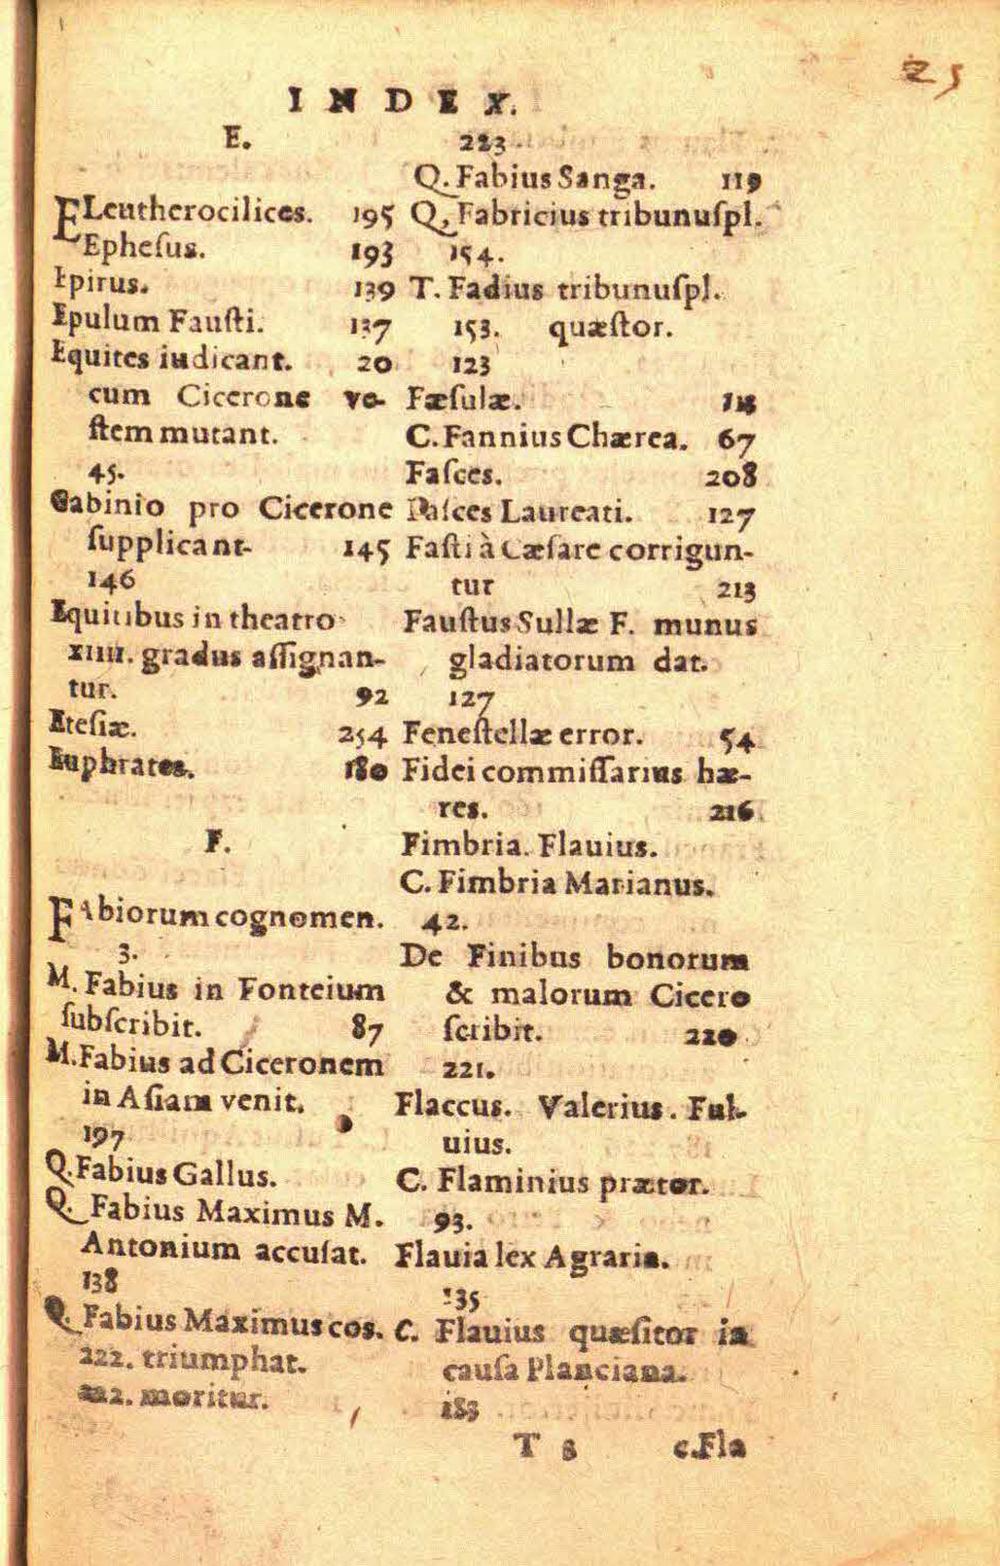 25
INDEX.
E.
ELeutherocilices. 195
Epheſus. 193
Epirus. 139
Epulum Fauſti. 137
Equites iudicant. 20
cum Cicerone ve-
ſtem mutant.
45.
Gabinio pro Cicerone
ſupplicant. 145
146
Equitibus in theatro
XIIII. gradus aſſignan-
tur. 92
Eteſiæ. 254
Euphrates. 180
F.
FAbiorum cognomen.
3.
M. Fabius in Fonteium
ſubſcribit. 87
M. Fabius ad Ciceronem
in Aſiam venit.
197
Q. Fabius Gallus.
Q. Fabius Maximus M.
Antonium accuſat.
138
Q. Fabius Maximus cos.
222. triumphat.
222. moritur.
223.
Q. Fabius Sanga. 119
Q, Fabricius tribunuſpl.
154.
T. Fadius tribunuſpl.
153. quæſtor.
123
Fæſulæ.
C. Fannius Chærea. 67
Faſces. 208
Faſces Laureati. 127
Faſti à Cæſare corrigun-
tur 213
Fauſtus Sullæ F. munus
gladiatorum dat.
127
Feneſtellæ error. 54
Fidei commiſſarius hæ-
res. 216
Fimbria. Flauius.
C. Fimbria Marianus.
42.
De Finibus bonorum
& malorum Cicero
ſcribit. 220
221.
Flaccus. Valerius. Ful-
uius.
C. Flaminius prætor.
93.
Flauia lex Agraria.
135
C. Flauius quæſitor in
cauſa Planciana.
183
T 8 C. Fla